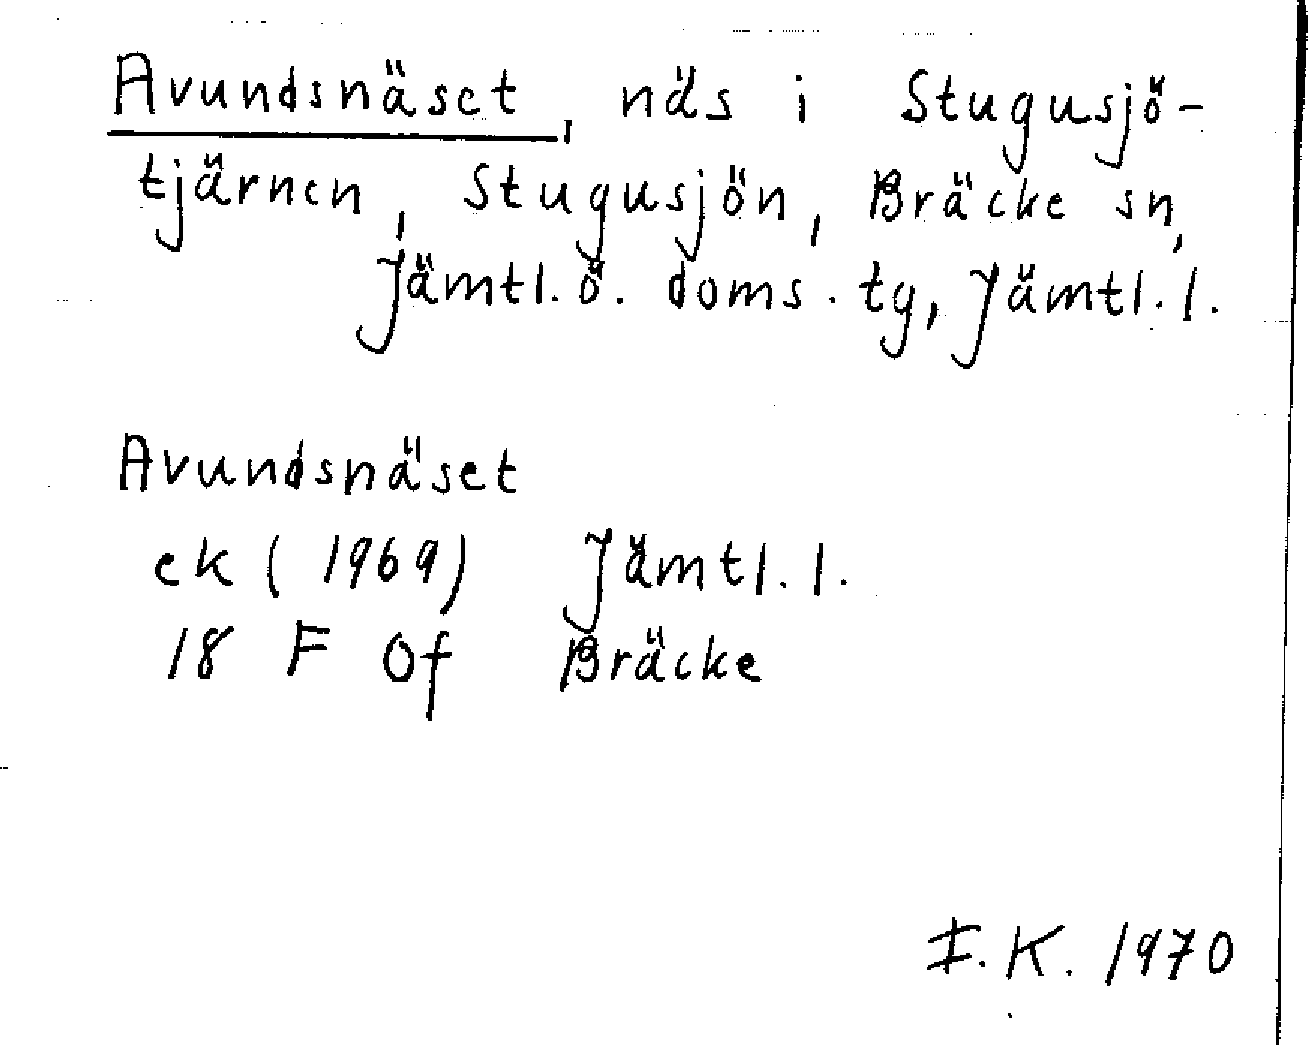 Avundsnäset, näs i Stugusjö-
tjärnen, Stugusjön, Bräcke sn,
Jämtl. ö. doms. tg, Jämtl. l.
Avundsnäset
ek (1969) Jämtl. l.
18 F Of Bräcke
I. K. 1970